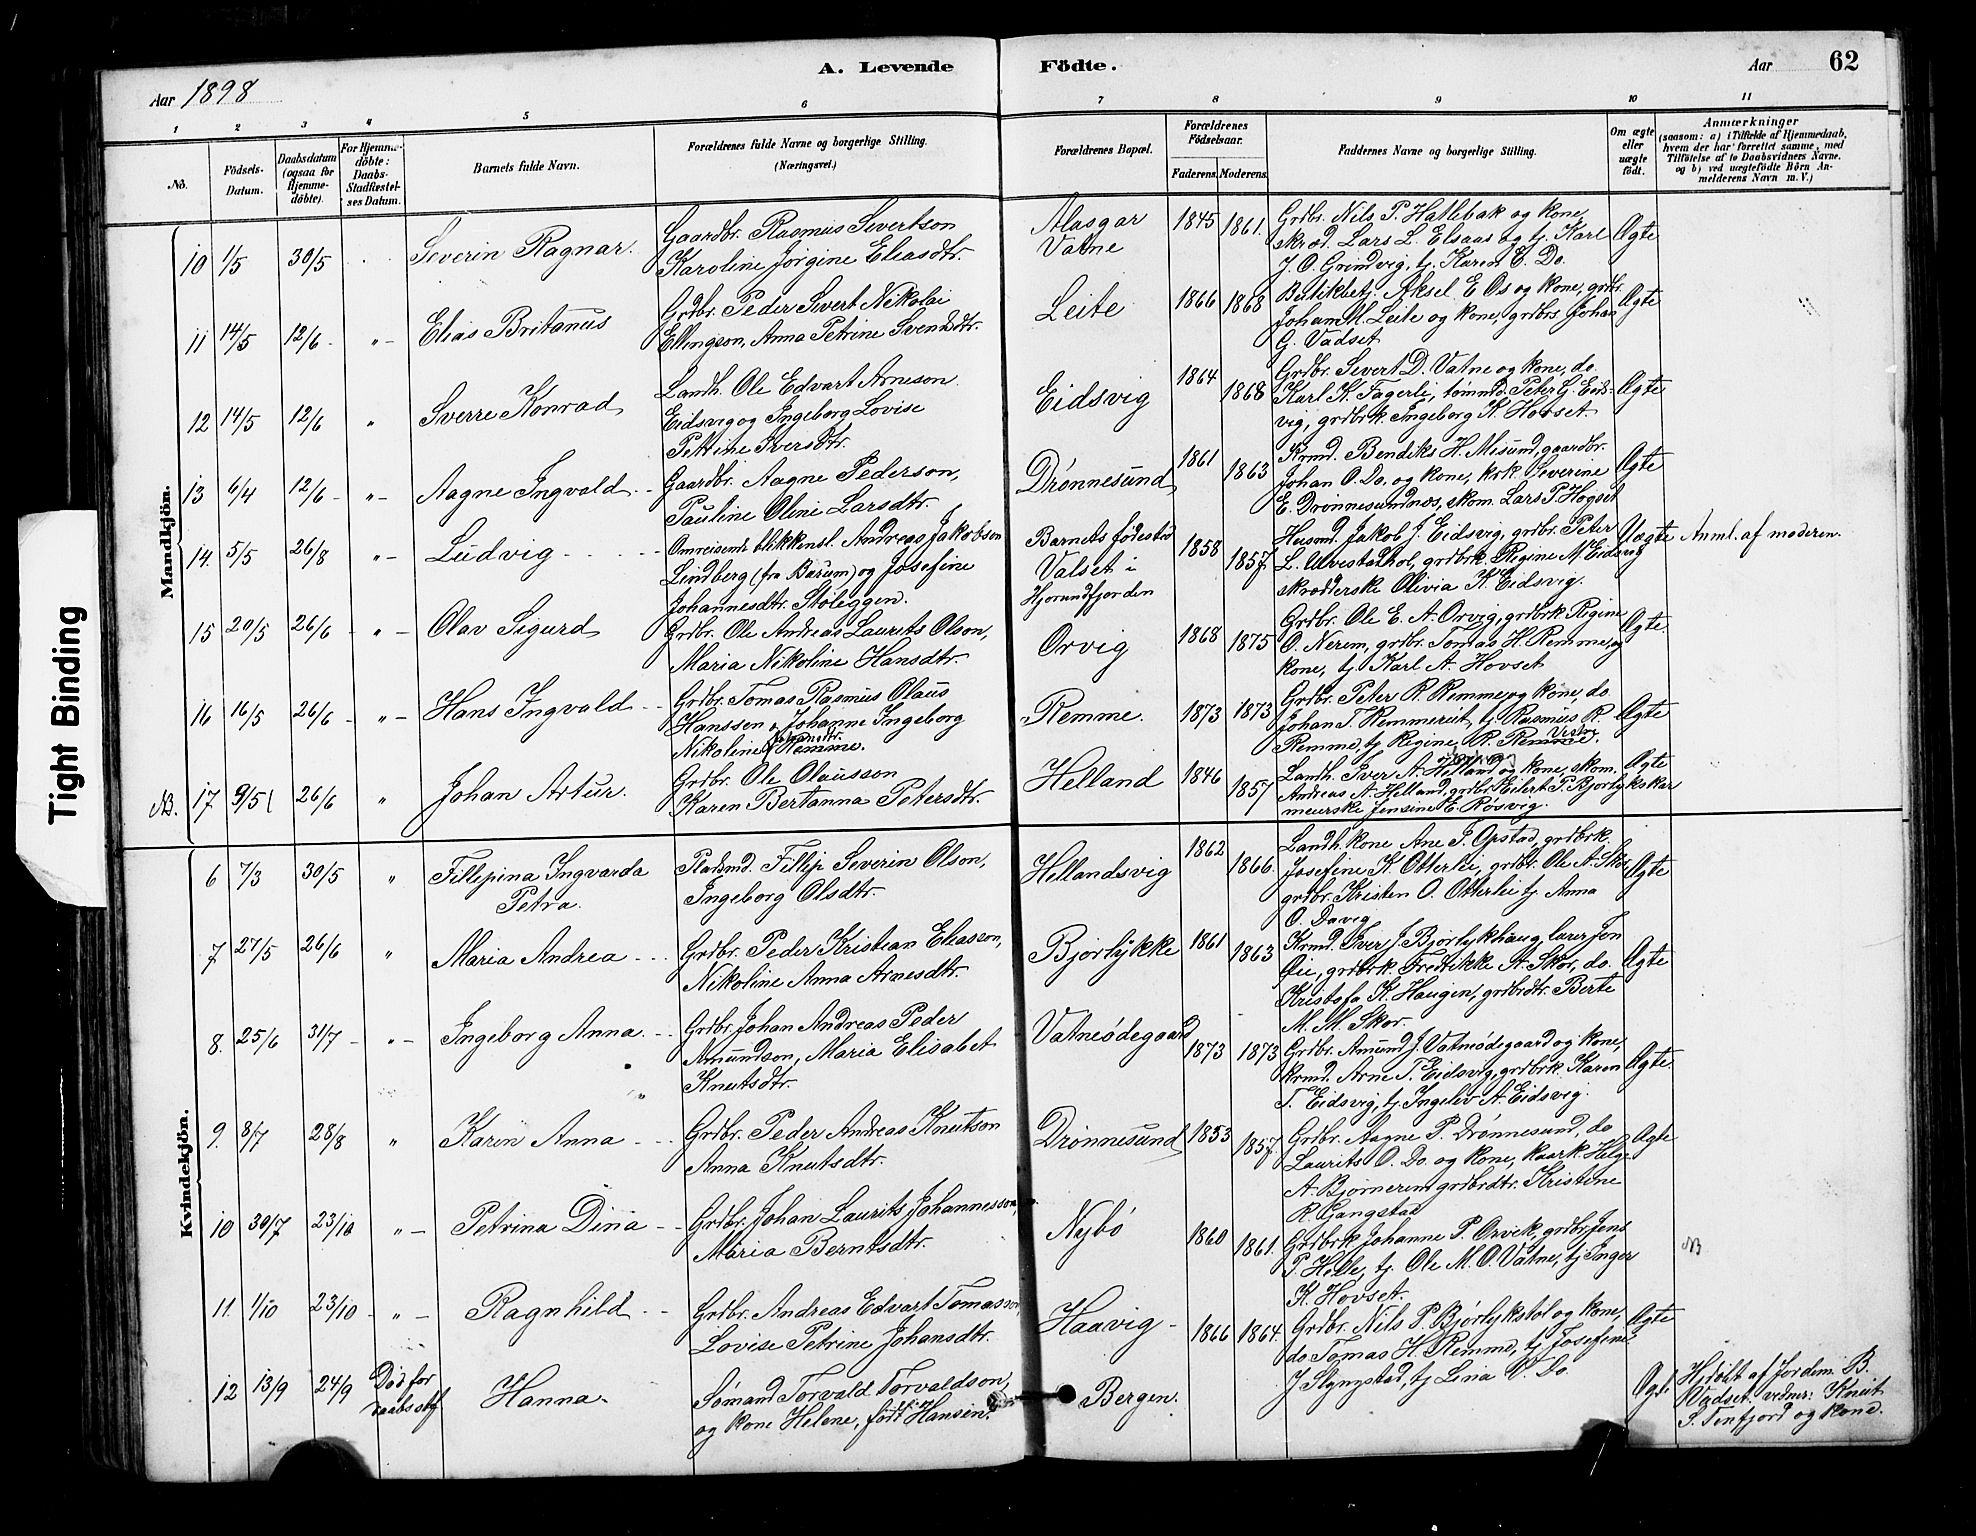 A. Levende Födte.
Aar 62
Aar 1898
1 2 3 4 5 6 7 8 9 10 11
No.
Födsels-Datum.
Daabsdatum (ogsaa for Hjemme-döbte).
For Hjemme-döbte: Daabs-Stadfæstel-ses Datum.
Barnets fulde Navn.
Forældrenes fulde Navne og borgerlige Stilling.
(Næringsvei.)
Forældrenes Bopæl.
Forældrenes Födselsaar.
Faderens. Moderens.
Faddernes Navne og borgerlige Stilling.
Om ægte eller uægte födt.
Anmærkninger
(saasom: a) i Tilfælde af Hjemmedaab, hvem der har forrettet samme, med Tilföielse af to Daabsvidners Navne, og b) ved uægtefödte Börn An-melderens Navn m. V.)
Tight Binding
Mandkjön.
10 1/5 30/5 Severin Ragnar.
Gaardbr. Rasmus Sivertson
Karoline Jørgine Eliasdtr.
Alasgar
Vatne
1845 1861.
Grdbr. Nils P. Hatlebak og kone,
skræd. Lars L. Elsaas og tj. Karl
J. O. Grindvig, tj. Karen E. Do.
Ægte
11 14/5 12/6 - " - Elias Britanus
Grdbr. Peder Sivert Nikolai
Ellingson, Anna Petrine Svendsdtr.
Leite
1866 1868
Butikbetj. Aksel E Os og kone, grdbr.
Johan M. Leite og kone, grdbrs Johan
G. Vadset
Ægte
12 14/5 12/6 " Sverre Konrad
Landh. Ole Edvart Arneson
Eidsvig og Ingeborg Lovise
Petrine Iversdtr.
Eidsvig
1864 1868
Grdbr. Sivert D. Vatne og kone, do
Karl K. Fagerli, tømmd. Peter G. Eids-
vig, grdbrk. Ingeborg K. Hovset.
Ægte
13 6/4 12/6 - " - Aagne Ingvald
Gaardbr. Aagne Pederson,
Pauline Oline Larsdtr.
Drønnesund
1861 1863
Krmd. Bendiks H. Misund, gaardbr.
Johan O. Do. og kone, krk. Severine
E. Drønnesundnæs, skom. Lars P. Hogset
Ægte
14. 5/5 26/8 " - Ludvig
Omreisende blikkensl. Andreas Jakobson
Lindberg (fra Bærum) og Josefine
Johannesdtr. Støleggen.
Barnets fødested
Valset i
Hjorundfjorden
1858 1857.
Husmd. Jakob J. Eidsvig, grdbr. Peter
L. Ulvestadhol, grdbrk. Regine N. Eidsvig
skrædderske Olivia K. Eidsvig.
Uægte
Anml. af moderen.
15 20/5 26/6 - " - Olav Sigurd
Grdbr. Ole Andreas Laurits Olson,
Maria Nikoline Hansdtr.
Orvig
1868 1875
Grdbr. Ole E. A. Orvig, grdbrk Regine
O. Nerem, grdbr. Tomas H. Remme, og
kone, tj. Karl A. Hovset
Ægte.
16 16/5 26/6 - " - Hans Ingvald
Grdbr. Tomas Rasmus Olaus
Hansson & Johanne Ingeborg
Nikoline Johansdtr. Remme.
Remme.
1873 1873
Grdbr. Peter R. Remme og kone, do
Johan T. Remmereit, tj. Rasmus R.
Remme, tj. Regine R. Remme. Vestre
Ægte
NB. 17 9/5 26/6 " Johan Artur.
Grdbr. Ole Olausson
Karen Bertanna Petersdtr.
Helland
1846 1857
Landh. Iver A. Helland og kone, skom.
Andreas A. Helland, grdbr. Eilert P. Bjorlykskar
meierske Jensine E. Røsvig.
Ægte
Kvindekjön.
6 7/3 30/5 " Fillipina Ingvarda
Petra.
Pladsmd. Fillip Severin Olson,
Ingeborg Olsdtr.
Hellandsvig
1862 1866.
Landh. kone Ane I. Opstad, grdbrk.
Josefine K. Otterlei, grdbr. Ole A. Skor,
grdbr. Kristen O. Otterlei tj. Anna
O. Davig
Ægte
7 27/5 26/6 " Maria Andrea
Grdbr. Peder Kristian Eliasson,
Nikoline Anna Arnesdtr.
Bjorlykke
1861 1863
Krmd. Iver J. Bjorlykhaug, lærer Jon
Øie, grdbrk. Fredrikke A. Skor, do.
Kristofa K. Haugen, grdbrdtr. Berte
M. M. Skor.
Ægte
8. 25/6 31/7 - " - Ingeborg Anna
Grdbr. Johan Andreas Peder
Amundson, Maria Elisabet
Knutsdtr.
Vatneødegaard
1873 1873
Grdbr. Amund J. Vatneødegaard og kone,
krmd. Arne T. Eidsvig, grdbrk. Karen
T. Eidsvig, tj. Ingelev A. Eidsvig.
Ægte.
9. 8/7 28/8 " Karen Anna
Grdbr. Peder Andreas Knutson
Anna Knutsdtr.
Drønnesund
1853 1857.
Grdbr. Aagne P. Drønnesund, do
Laurits O. Do. og kone, kaark. Helge
A. Bjørnerem grdbrdtr. Kristine
R. Gangstad
Ægte
10 30/7 23/10 " - Petrina Dina
Grdbr. Johan Laurits Johannesson,
Maria Berntsdtr.
Nybø
1860 1861.
Grdbrk. Johanne P. Orvik, grdbr. Jens
P. Helle, tj. Ole M. O. Vatne, tj Inger
K. Hovset.
NB
11. 1/10 23/10 - " - Ragnhild
Grdbr. Andreas Edvart Tomasson
Lovise Petrine Johansdtr.
Haavig
1866 1864.
Grdbr. Nils P. Bjørlykstol og kone,
do Tomas H. Remme, tj Josefine
J Slyngstad, tj Lina O. Do.
Ægte
12 13/9 24/9 Død før
daabsstf
Hanna.
Sømand Torvald Torvaldson,
og kone Helene, født Hansen.
Bergen.
Ægte
Hjdøbt af jordem. B.
Vadset. vidner: Knut
P. Tenfjord og kone.